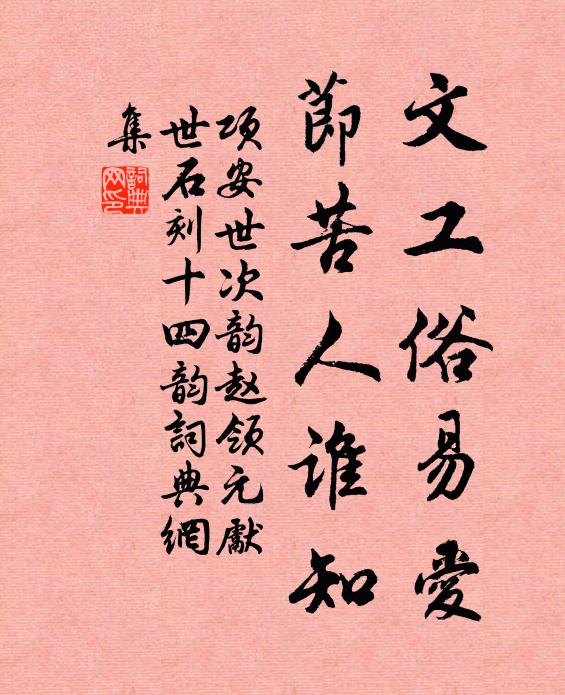 文工俗易愛
節苦人誰知
項安世次韵赵領元獻
世石刻十四韵詞典網
集
詞典網印